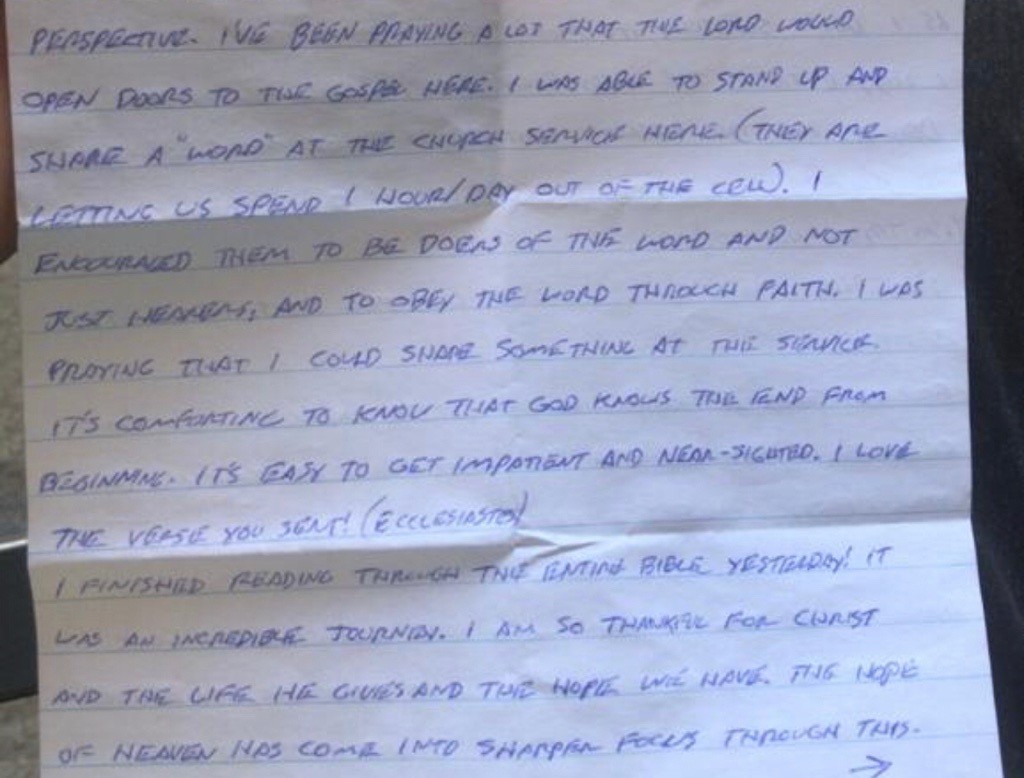 PERSPECTIVE. I'VE BEEN PRAYING A LOT THAT THE LORD WOULD
OPEN DOORS TO THE GOSPEL HERE. I WAS ABLE TO STAND UP AND
SHARE A "WORD" AT THE CHURCH SERVICE HERE. (THEY ARE
LETTING US SPEND 1 HOUR/DAY OUT OF THE CELL). I
ENCOURAGED THEM TO BE DOERS OF THE WORD AND NOT
JUST HEARERS, AND TO OBEY THE WORD THROUGH FAITH. I WAS
PRAYING THAT I COULD SHARE SOMETHING AT THE SERVICE.
IT'S COMFORTING TO KNOW THAT GOD KNOWS THE END FROM
BEGINNING. IT'S EASY TO GET IMPATIENT AND NEAR-SIGHTED. I LOVE
THE VERSE YOU SENT! (ECCLESIASTES)
I FINISHED READING THROUGH THE ENTIRE BIBLE YESTERDAY! IT
WAS AN INCREDIBLE JOURNEY. I AM SO THANKFUL FOR CHRIST
AND THE LIFE HE GIVES AND THE HOPE WE HAVE. THE HOPE
OF HEAVEN HAS COME INTO SHARPER FOCUS THROUGH THIS.
→